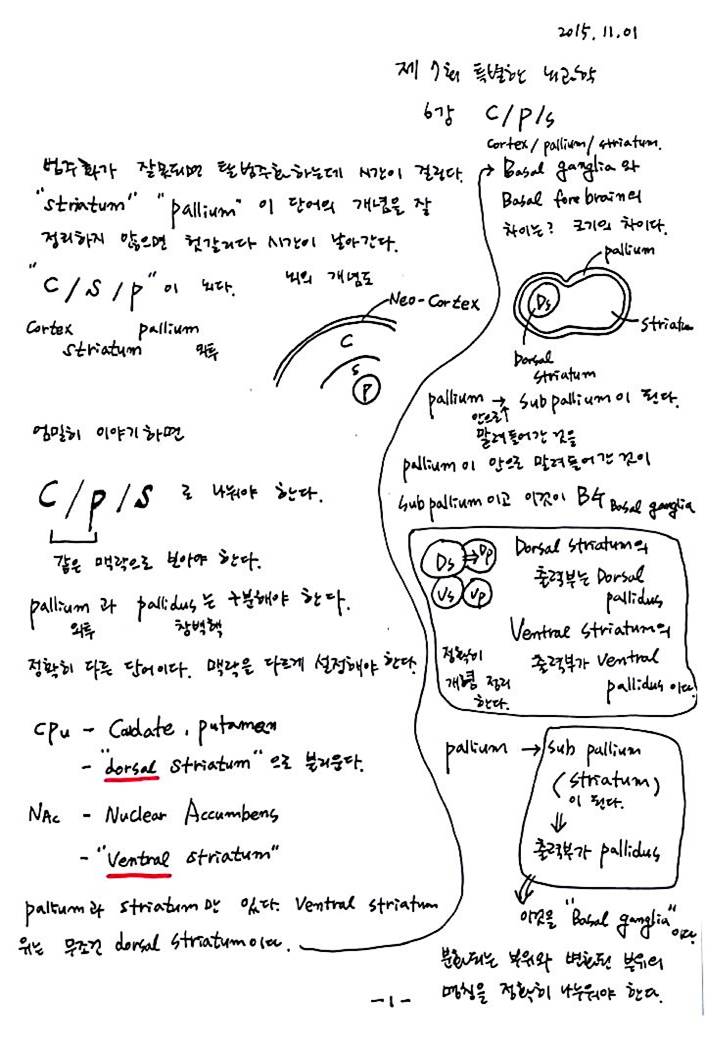 2015. 11. 01
제 7회 특별한 뇌과학
6강 C/P/S
Cortex / pallium / striatum.
범주화가 잘못되면 탈범주화하는데 시간이 걸린다.
"striatum" "pallium" 이 단어의 개념을 잘
정리하지 않으면 헛갈리다 시간이 날아간다.
"C/S/p" 이 뇌다. 뇌의 개념도
Cortex pallium
striatum 외투
Neo-Cortex
C
S
P
엄밀히 이야기하면
C/p/S 로 나눠야 한다.
같은 맥락으로 보아야 한다.
pallium 과 pallidus는 구분해야 한다.
외투 창백핵
정확히 다른 단어이다. 맥락을 다르게 설정해야 한다.
CPu - Caudate, putamen
- "dorsal striatum" 으로 불리운다.
NAc - Nuclear Accumbens
- "Ventral striatum"
pallium과 striatum 만 있다. Ventral striatum
위는 무조건 dorsal striatum이다.
Basal ganglia 와
Basal forebrain의
차이는? 크기의 차이다.
pallium
Ds
striatum
Dorsal
striatum
pallium → sub pallium이 된다.
안으로↑
말려들어간 것을
pallium이 안으로 말려들어간 것이
sub pallium이고 이것이 BG Basal ganglia
Ds ⇒ Dp
Vs Vp
Dorsal striatum의
출력부는 Dorsal
pallidus
Ventral striatum의
출력부가 Ventral
pallidus 이다.
정확히
개념 정리
한다.
pallium → sub pallium
(striatum)
이 된다.
⇓
출력부가 pallidus
⇓
이것을 "Basal ganglia" 이다.
분화되는 부위와 변화된 부위의
명칭을 정확히 나누워야 한다.
-1-